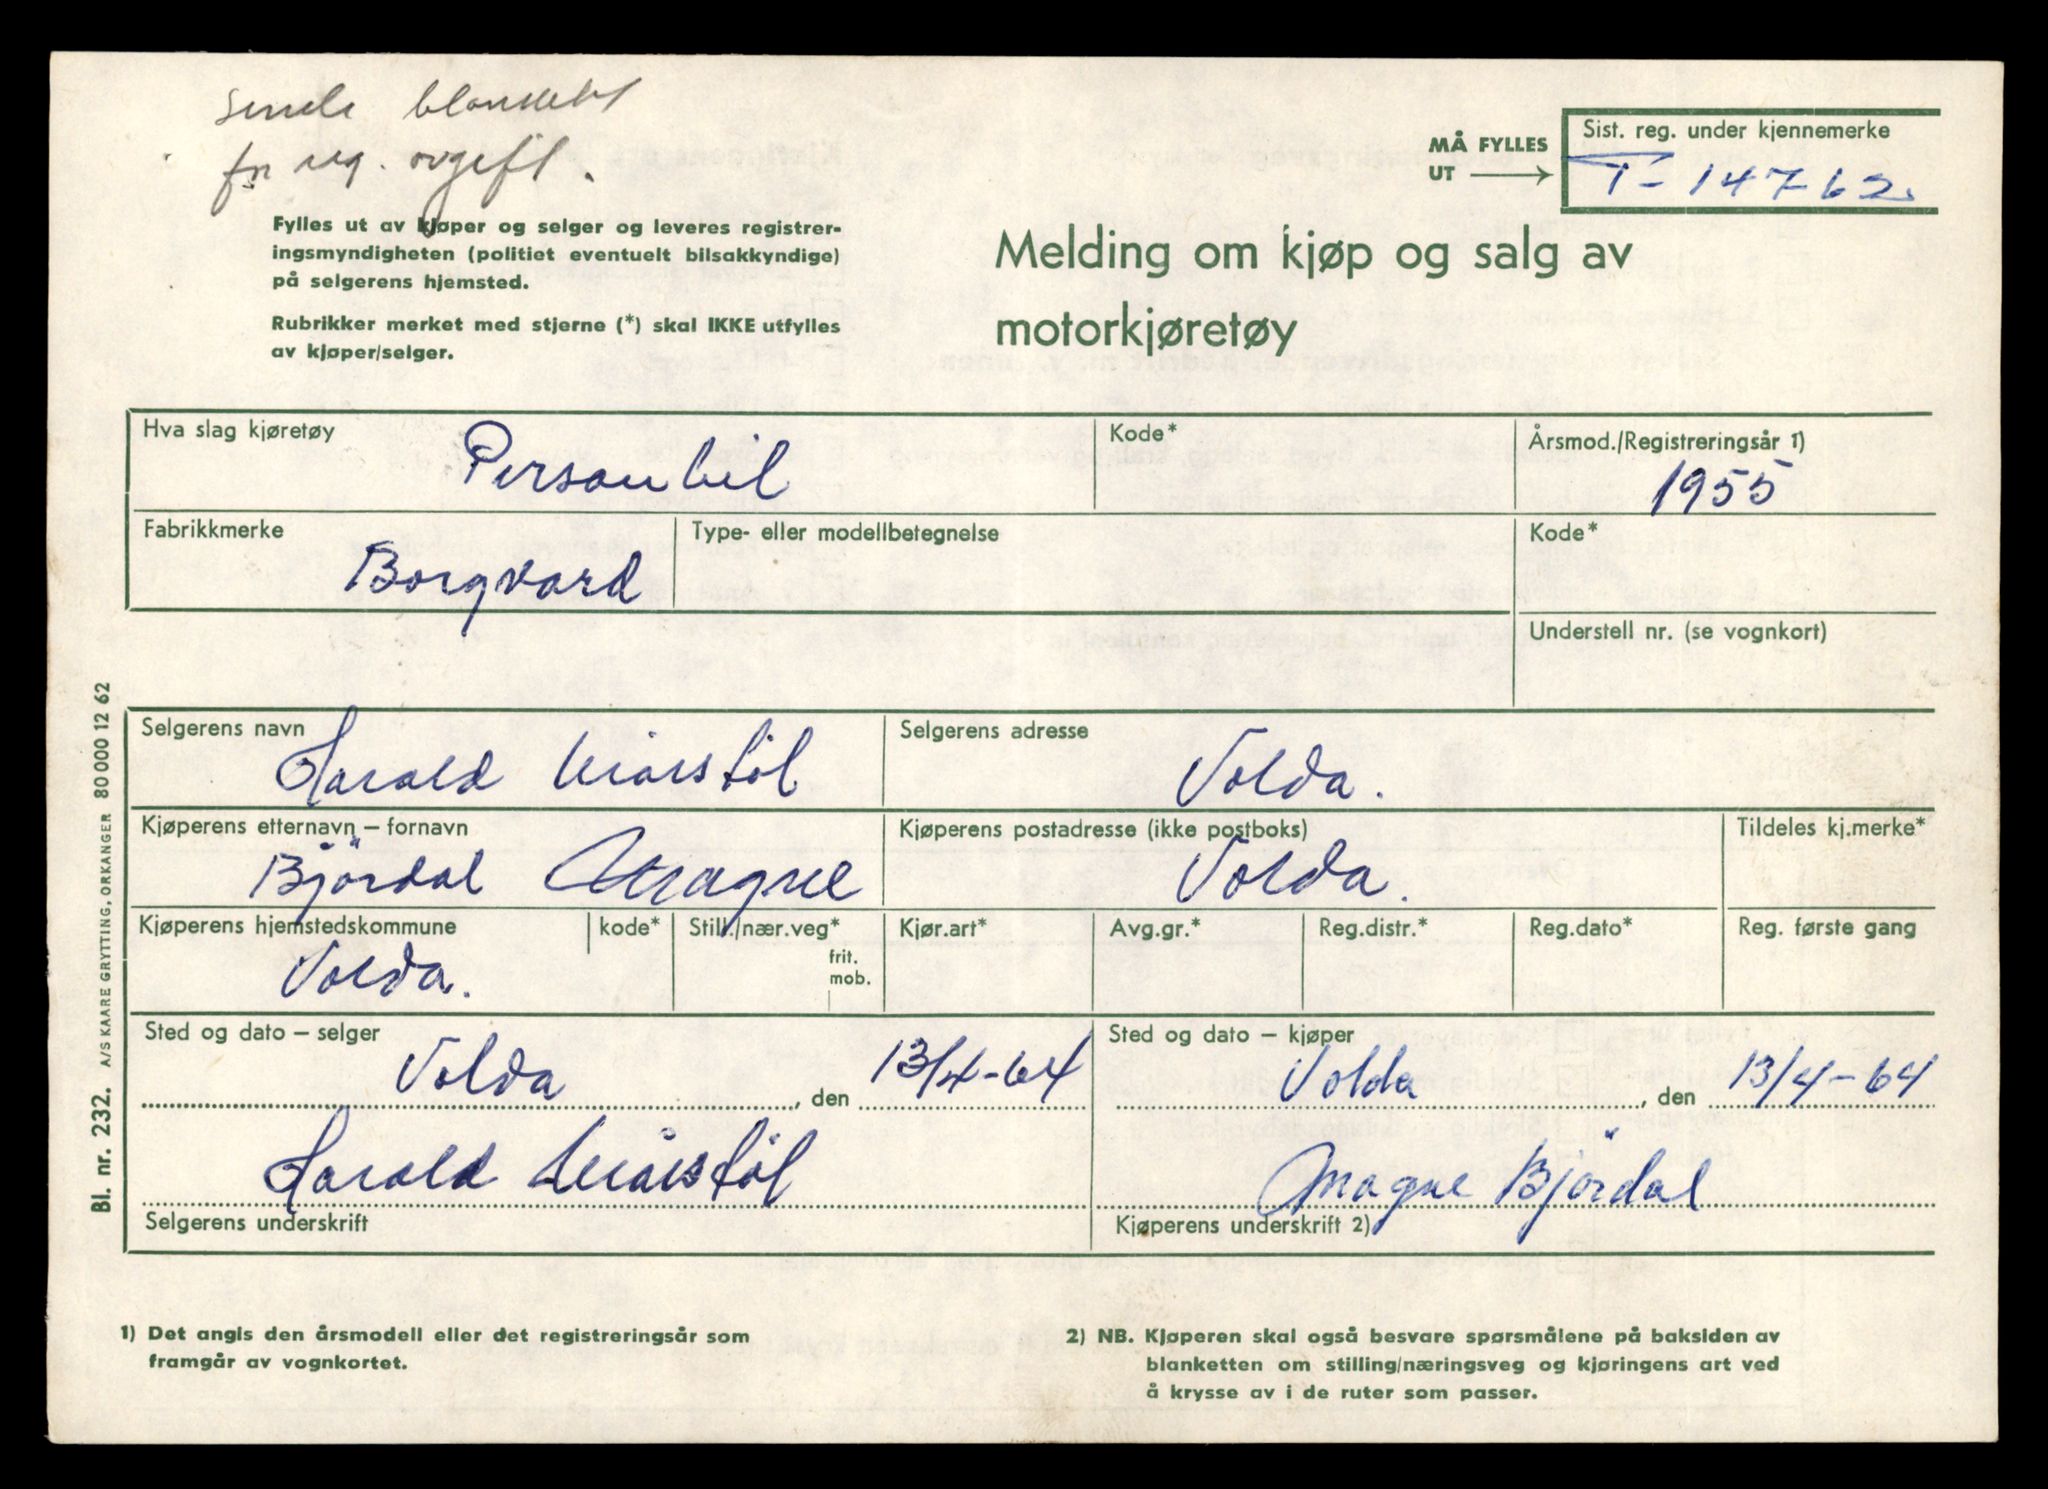 blankett
for reg. avgift.
MÅ FYLLES
UT
Sist. reg. under kjennemerke
T-14762
Fylles ut av kjøper og selger og leveres registrer-
ingsmyndigheten (politiet eventuelt bilsakkyndige)
på selgerens hjemsted.
Rubrikker merket med stjerne (*) skal IKKE utfylles
av kjøper/selger.
Melding om kjøp og salg av
motorkjøretøy
Hva slag kjøretøy
Personbil
Kode*
Årsmod./Registreringsår 1)
1955
Fabrikkmerke
Borgvard
Type- eller modellbetegnelse
Kode*
Understell nr. (se vognkort)
Selgerens navn
Harald
Selgerens adresse
Volda.
Kjøperens etternavn – fornavn
Bjørdal Magne
Kjøperens postadresse (ikke postboks)
Volda.
Tildeles kj.merke*
Kjøperens hjemstedskommune
Volda.
kode*
Still./nær.veg*
frit.
mob.
Kjør.art*
Avg.gr.*
Reg.distr.*
Reg.dato*
Reg. første gang
Sted og dato – selger
Volda, den 13/4-64
Sted og dato – kjøper
Volda, den 13/4-64
Harald
Selgerens underskrift
Magne Bjørdal
Kjøperens underskrift 2)
1) Det angis den årsmodell eller det registreringsår som
framgår av vognkortet.
2) NB. Kjøperen skal også besvare spørsmålene på baksiden av
blanketten om stilling/næringsveg og kjøringens art ved
å krysse av i de ruter som passer.
Bl. nr. 232. A/S KAARE GRYTTING, ORKANGER 80 000 12 62